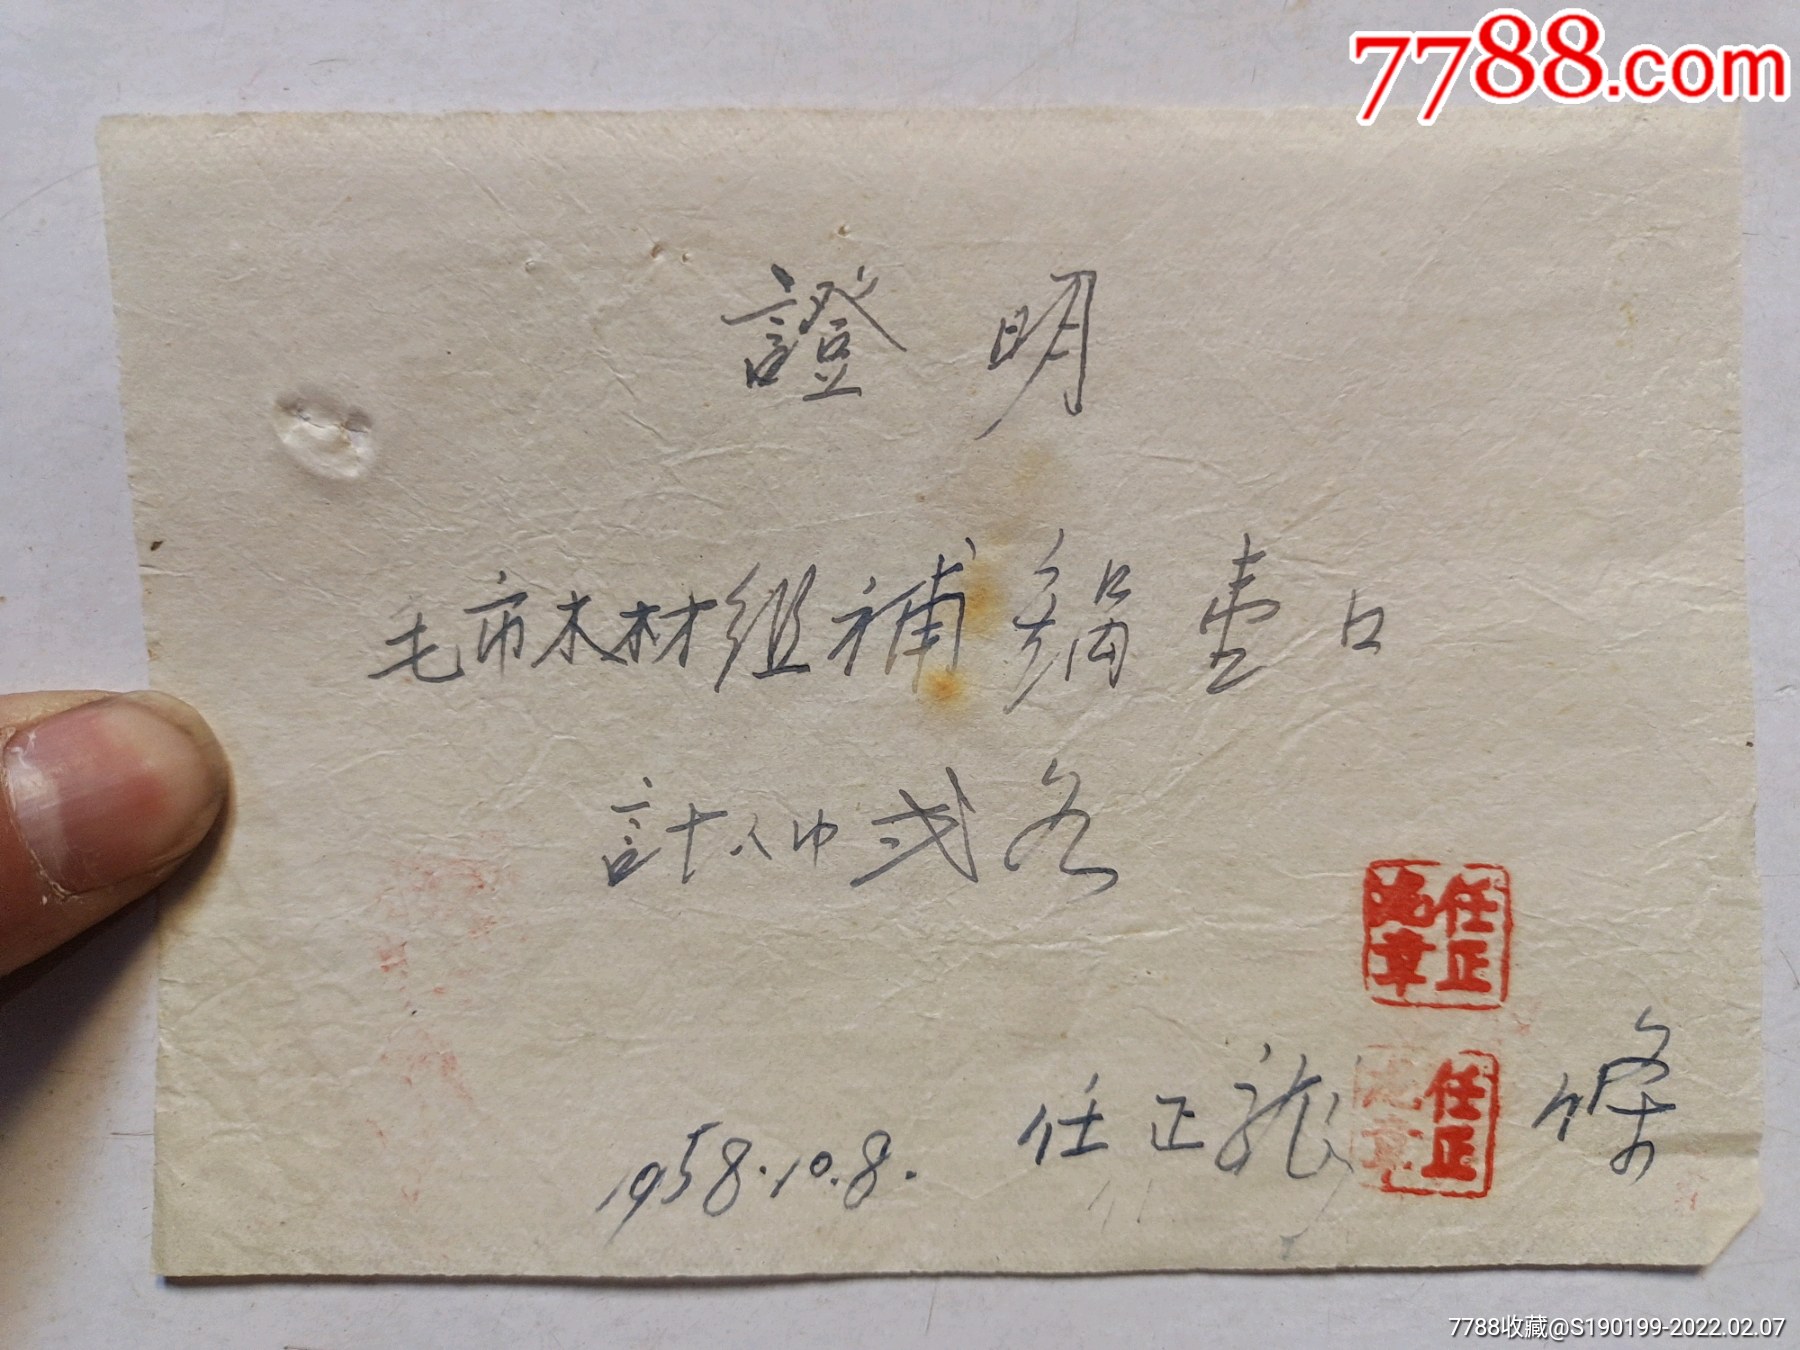 7788.com
證明
毛市木材組補鍋壹口
計人巾弍名
任正龍章
1958.10.8. 任正龍 條
任正龍章
7788收藏@S190199-2022.02.07